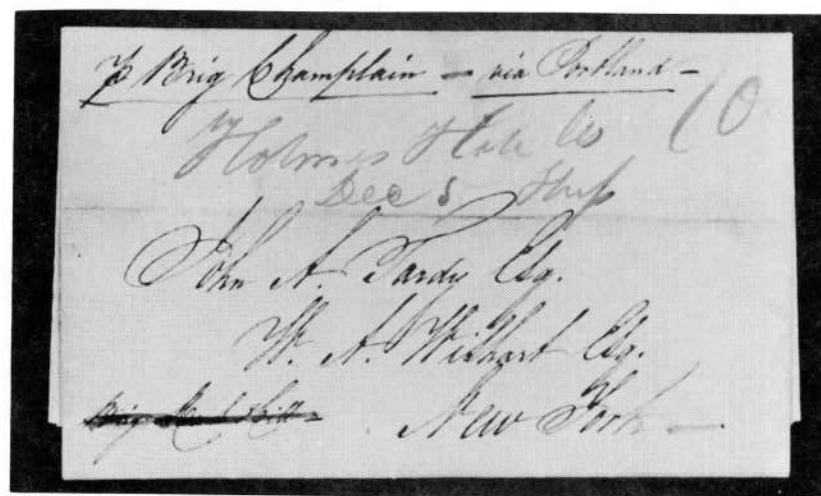 p Brig Champlain — via Portland —
10
Holmes Hole Ms
Dec 5 Ship
John A. Tardy Esq.
W. A. Esq.
New York —
Brig